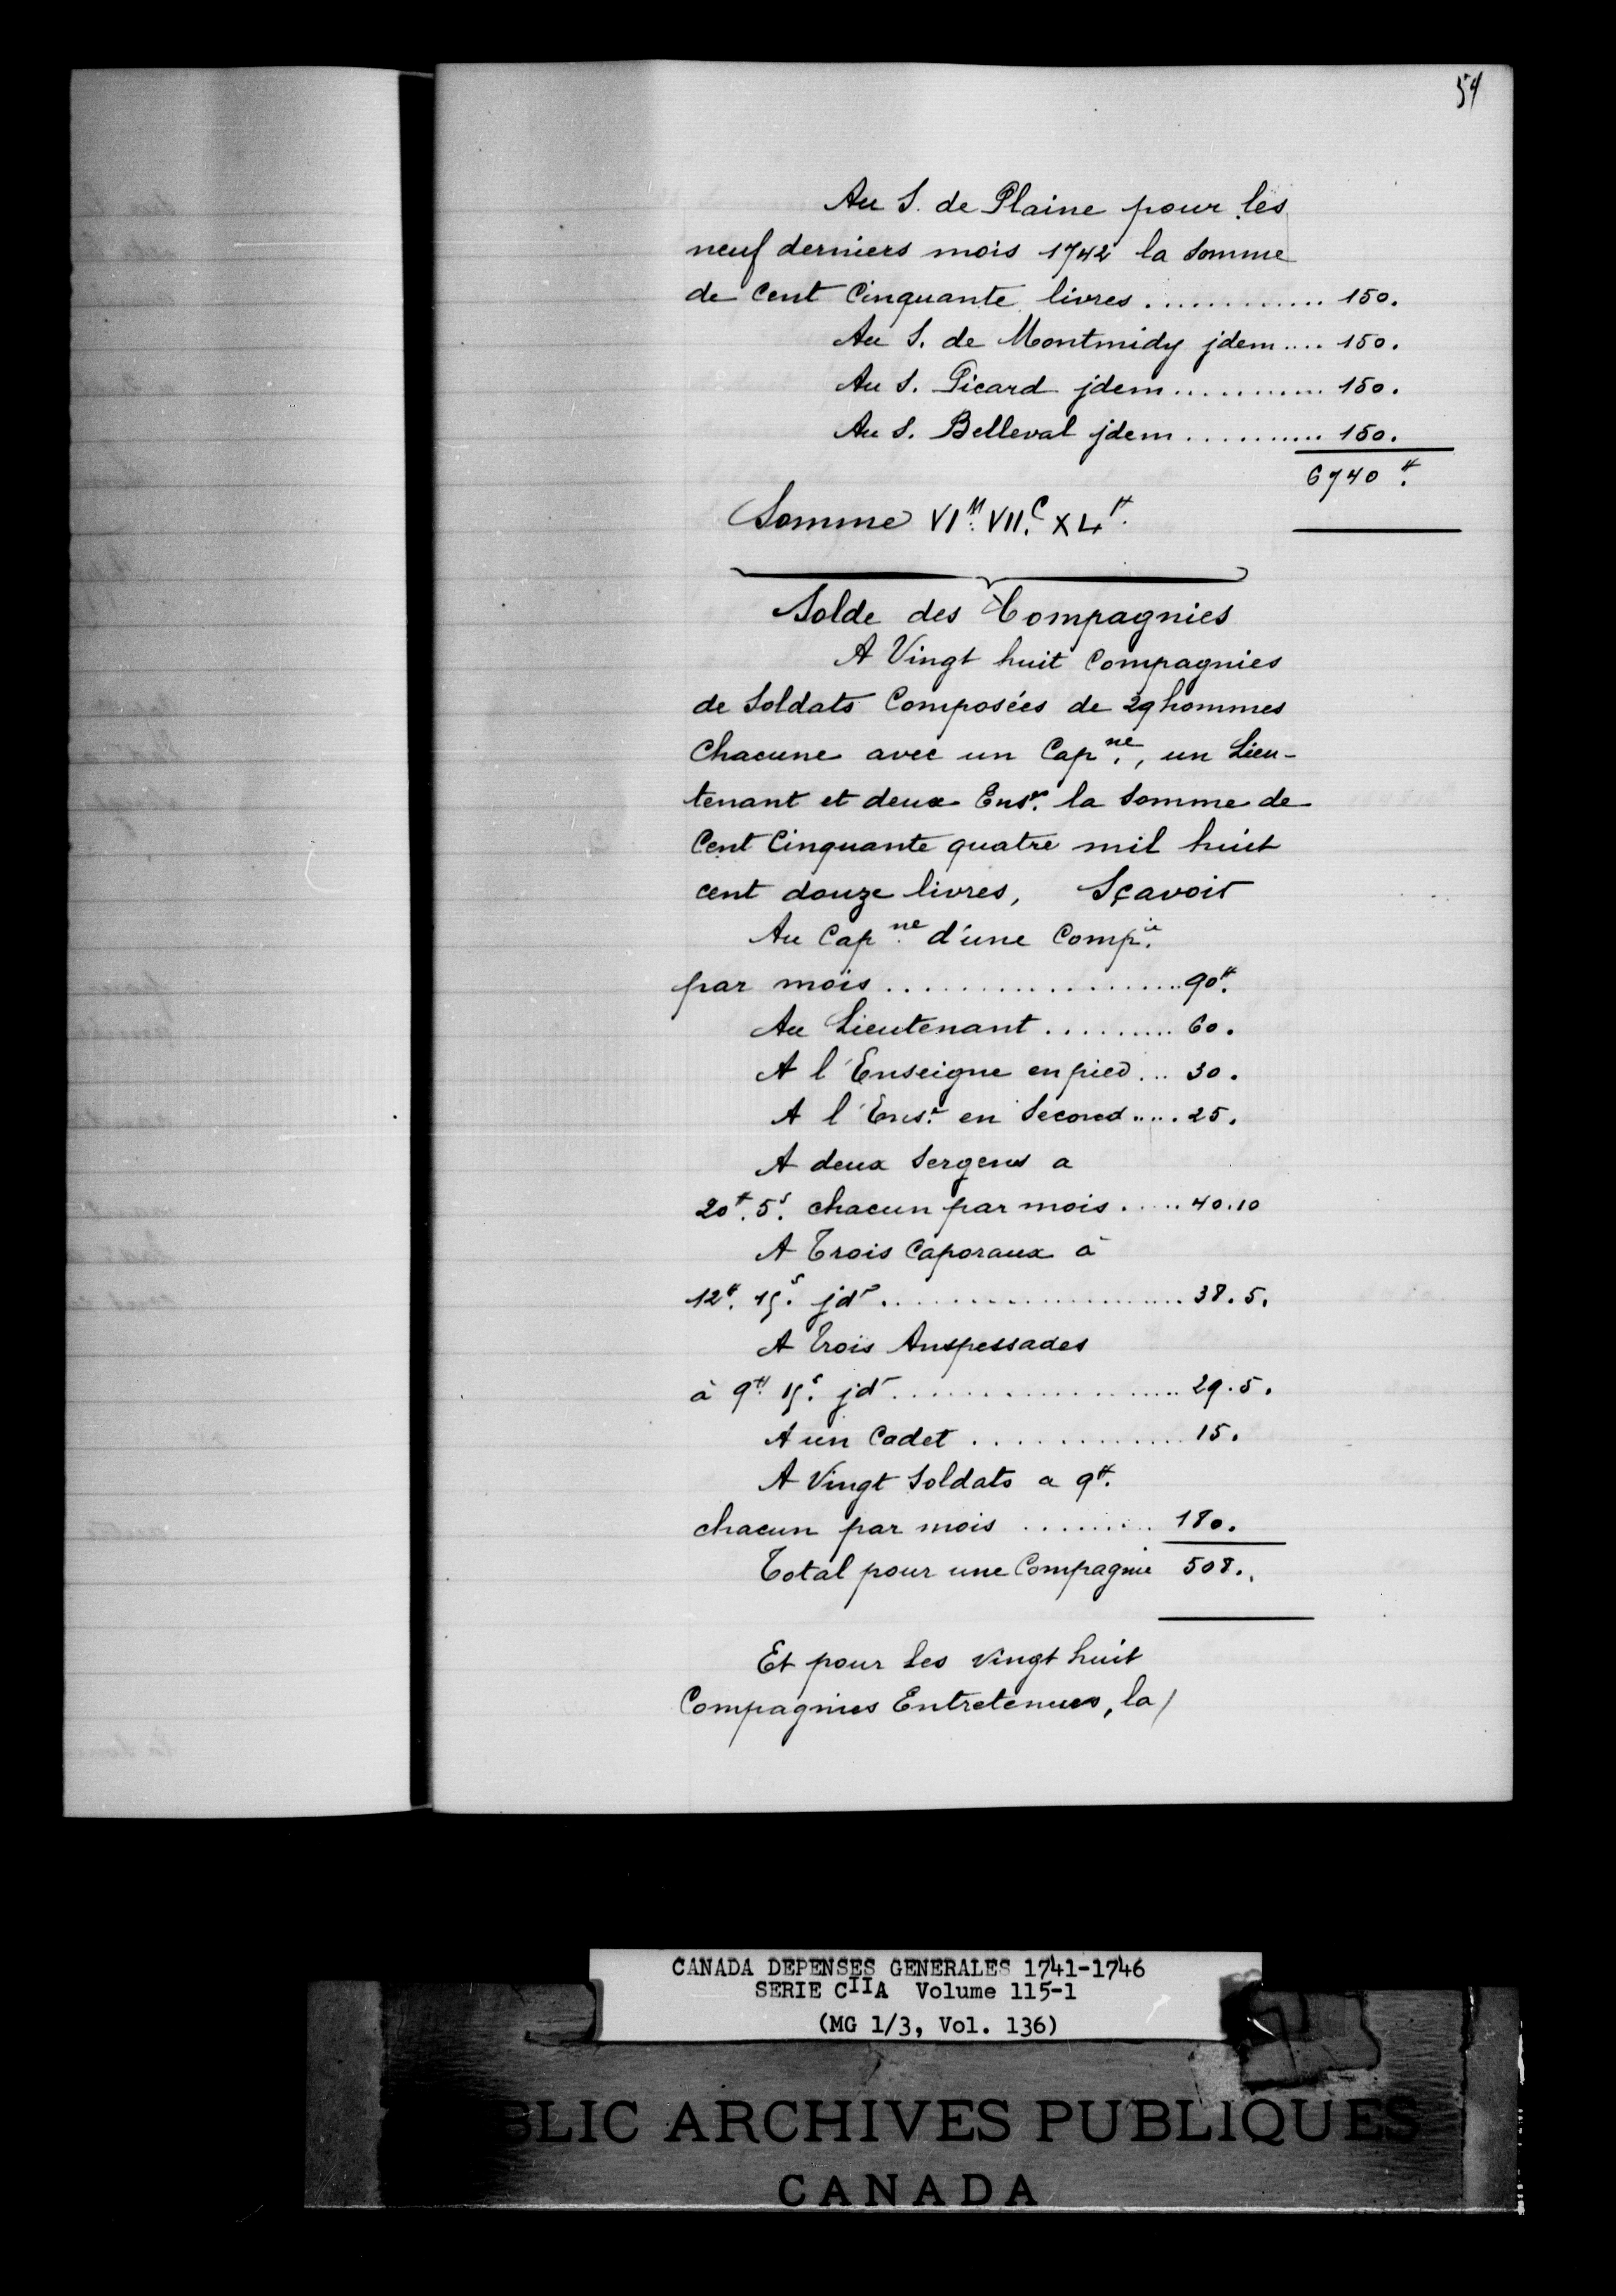 54
Au S. de Plaine pour les
neuf derniers mois 1742 la somme
de Cent Cinquante livres ............. 150.
Au S. de Montmidy jdem .... 150.
Au S. Picard jdem ............ 150.
Au S. Belleval jdem ........... 150.
6740 ₶.
Somme VI.M VII.C XL ₶.
Solde des Compagnies
A Vingt huit Compagnies
de Soldats Composées de 29 hommes
Chacune avec un Cap.ne, un Lieu-
tenant et deux Ens.e la Somme de
Cent Cinquante quatre mil huit
cent douze livres, Sçavoir
Au Cap.ne d'une Comp.ie
par mois ..................... 90₶.
Au Lieutenant .......... 60.
A l'Enseigne en pied ... 30.
A l'Ens.e en Second ..... 25.
A deux Sergens a
20₶. 5s. chacun par mois ..... 40.10
A Trois Caporaux à
12₶. 15s. jd. ...................... 38.5.
A Trois Anspessades
à 9₶. 15s. jd. ..................... 29.5.
A un Cadet ............... 15.
A Vingt Soldats a 9₶.
chacun par mois ......... 180.
Total pour une Compagnie 508..
Et pour les vingt huit
Compagnies Entretenues, la /
CANADA DEPENSES GENERALES 1741-1746
SERIE CIIA Volume 115-1
(MG 1/3, Vol. 136)
BLIC ARCHIVES PUBLIQUES
CANADA